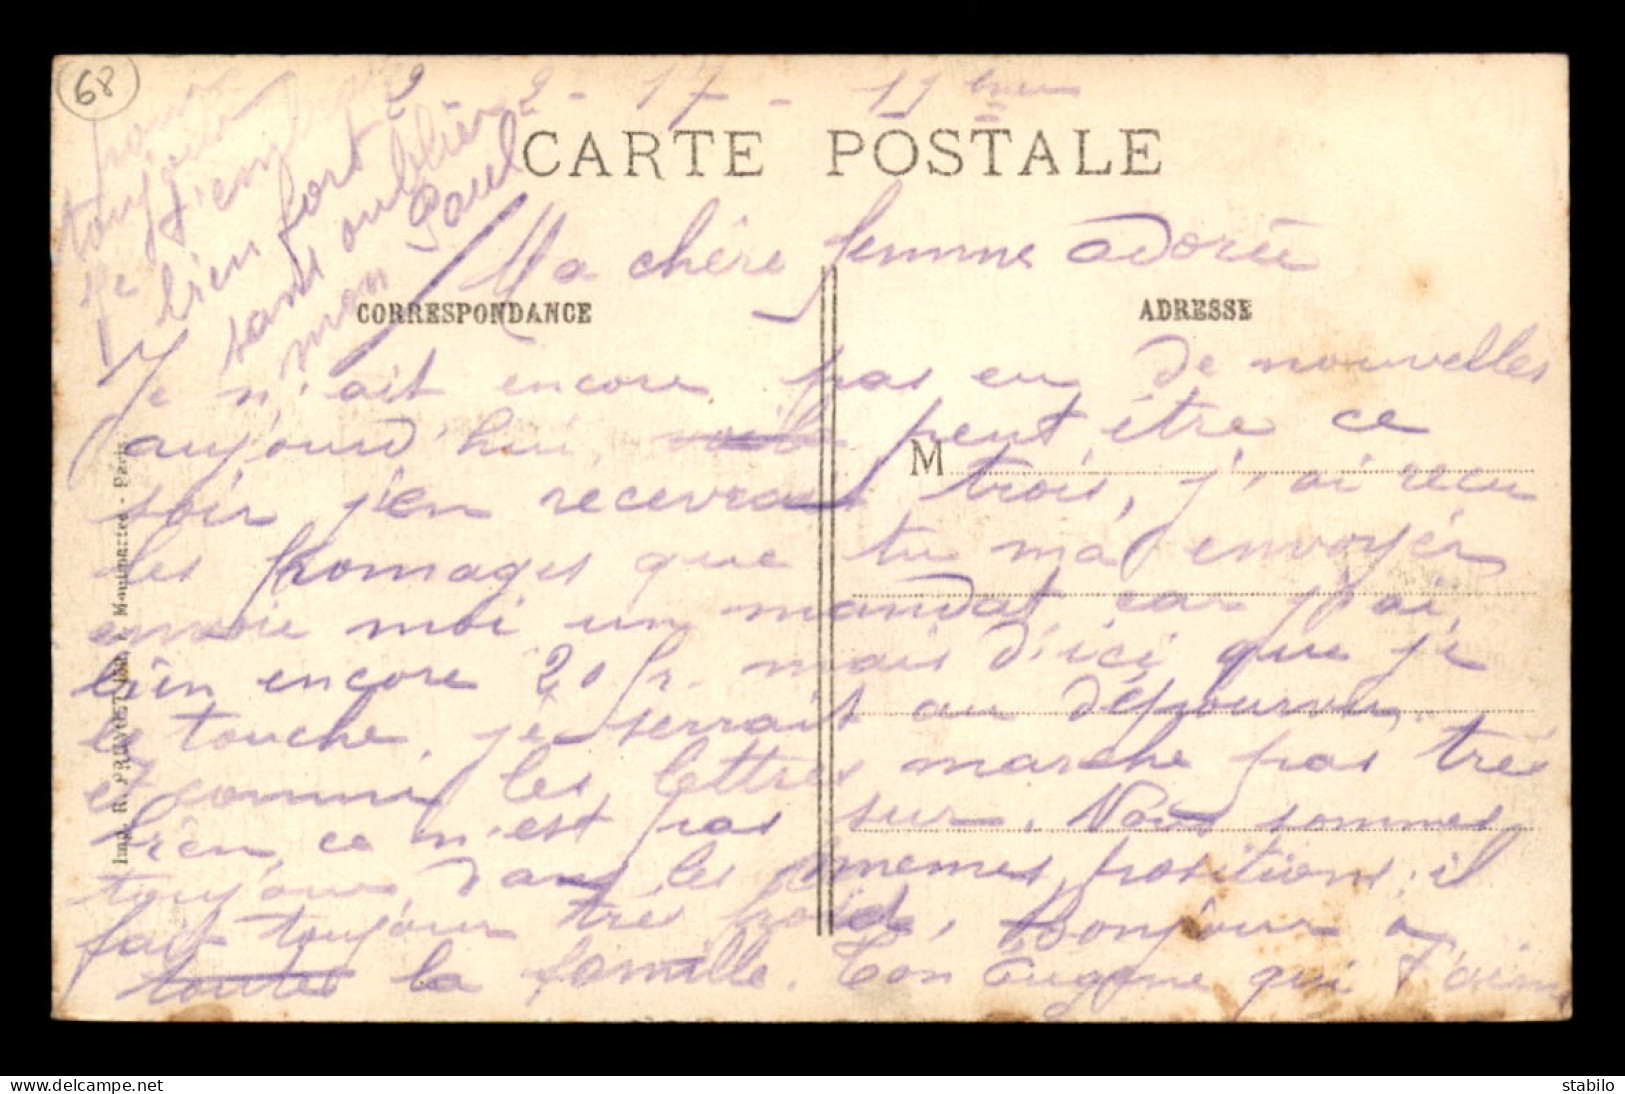 68
2 - 2 - 17 - 11 heures
CARTE POSTALE
Ma chère femme adorée
CORRESPONDANCE
ADRESSE
M
Je n'ait encore pas eu de nouvelles
aujourd'hui, peut être ce
soir j'en recevrais trois, j'ai recu
les fromages que tu ma envoyér
envoie moi un mandat car j'ai
bien encore 20 fr. mais d'ici que je
le touche, je serrait au dépourvu.
et comme les lettres marche pas très
bien, ce n'est pas sur. Nous sommes
toujours dans les memes positions, il
fait toujour très froid, Bonjour a
toutes la famille. Ton Eugene qui t'aime
pour
toujours
je t'embrasse
bien fort
sans oublier
mon Paul
Imp. R. PRUVOST, Montmartre - Paris
delcampe.net
stabilo